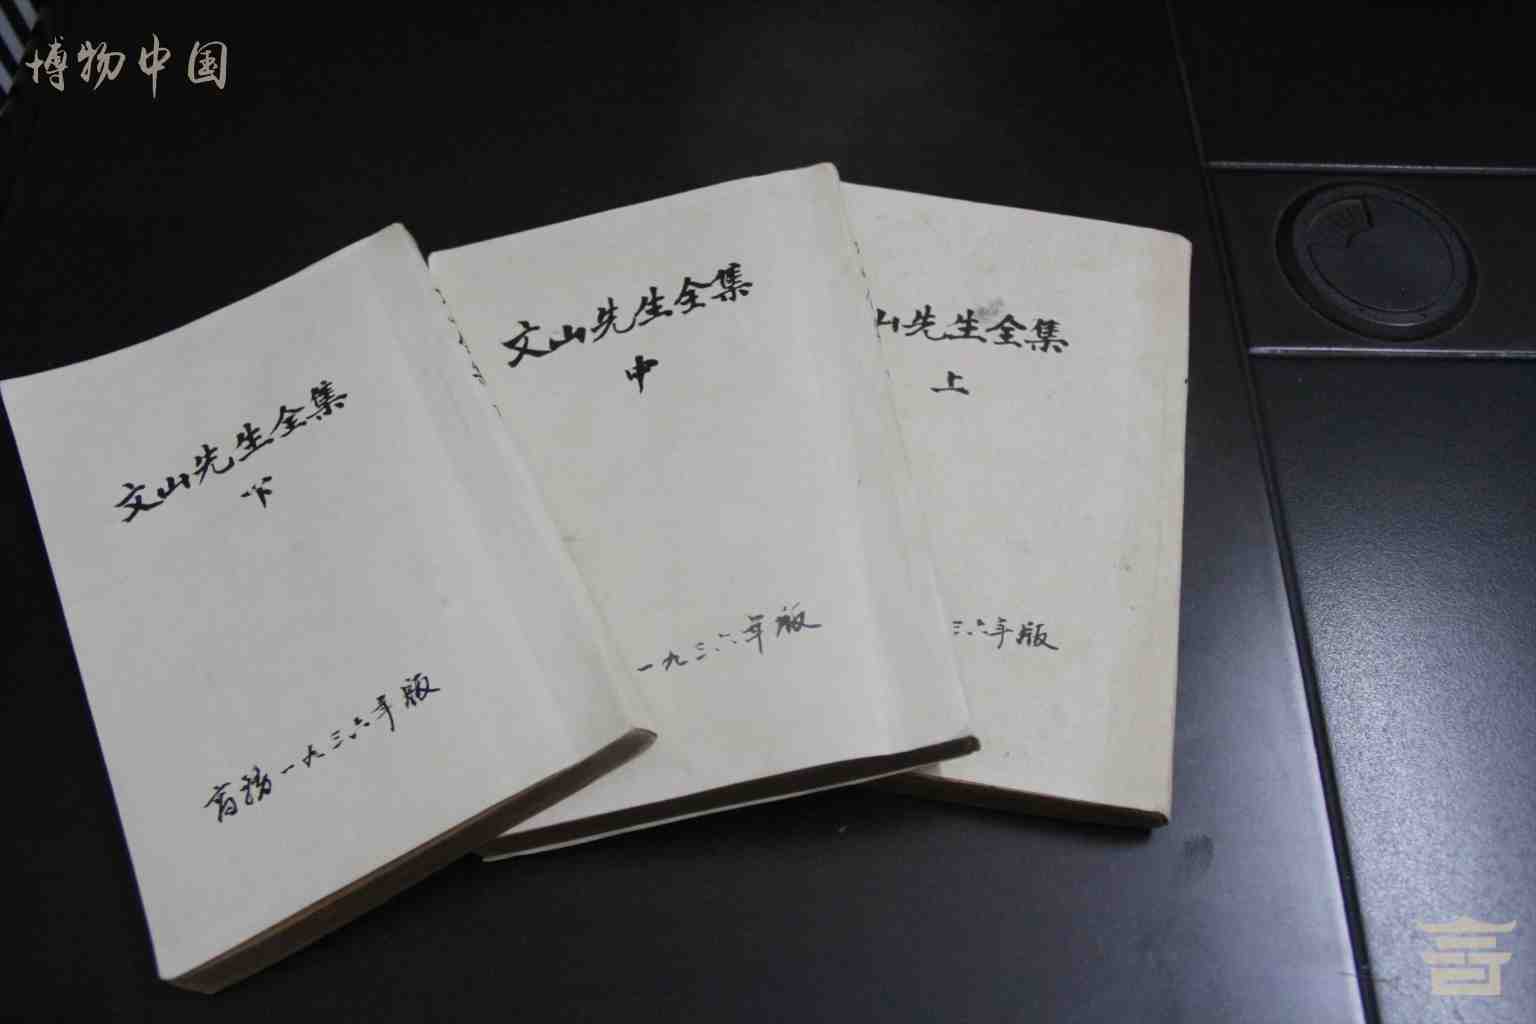 博物中国
文山先生全集
下
商務一九三六年版
文山先生全集
中
一九三六年版
山先生全集
上
三六年版